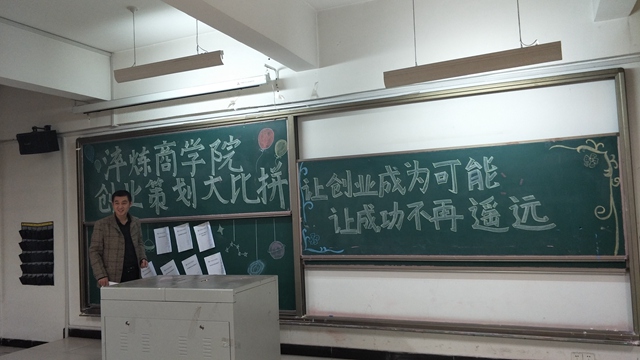 淬炼商学院
创业策划大比拼
让创业成为可能
让成功不再遥远